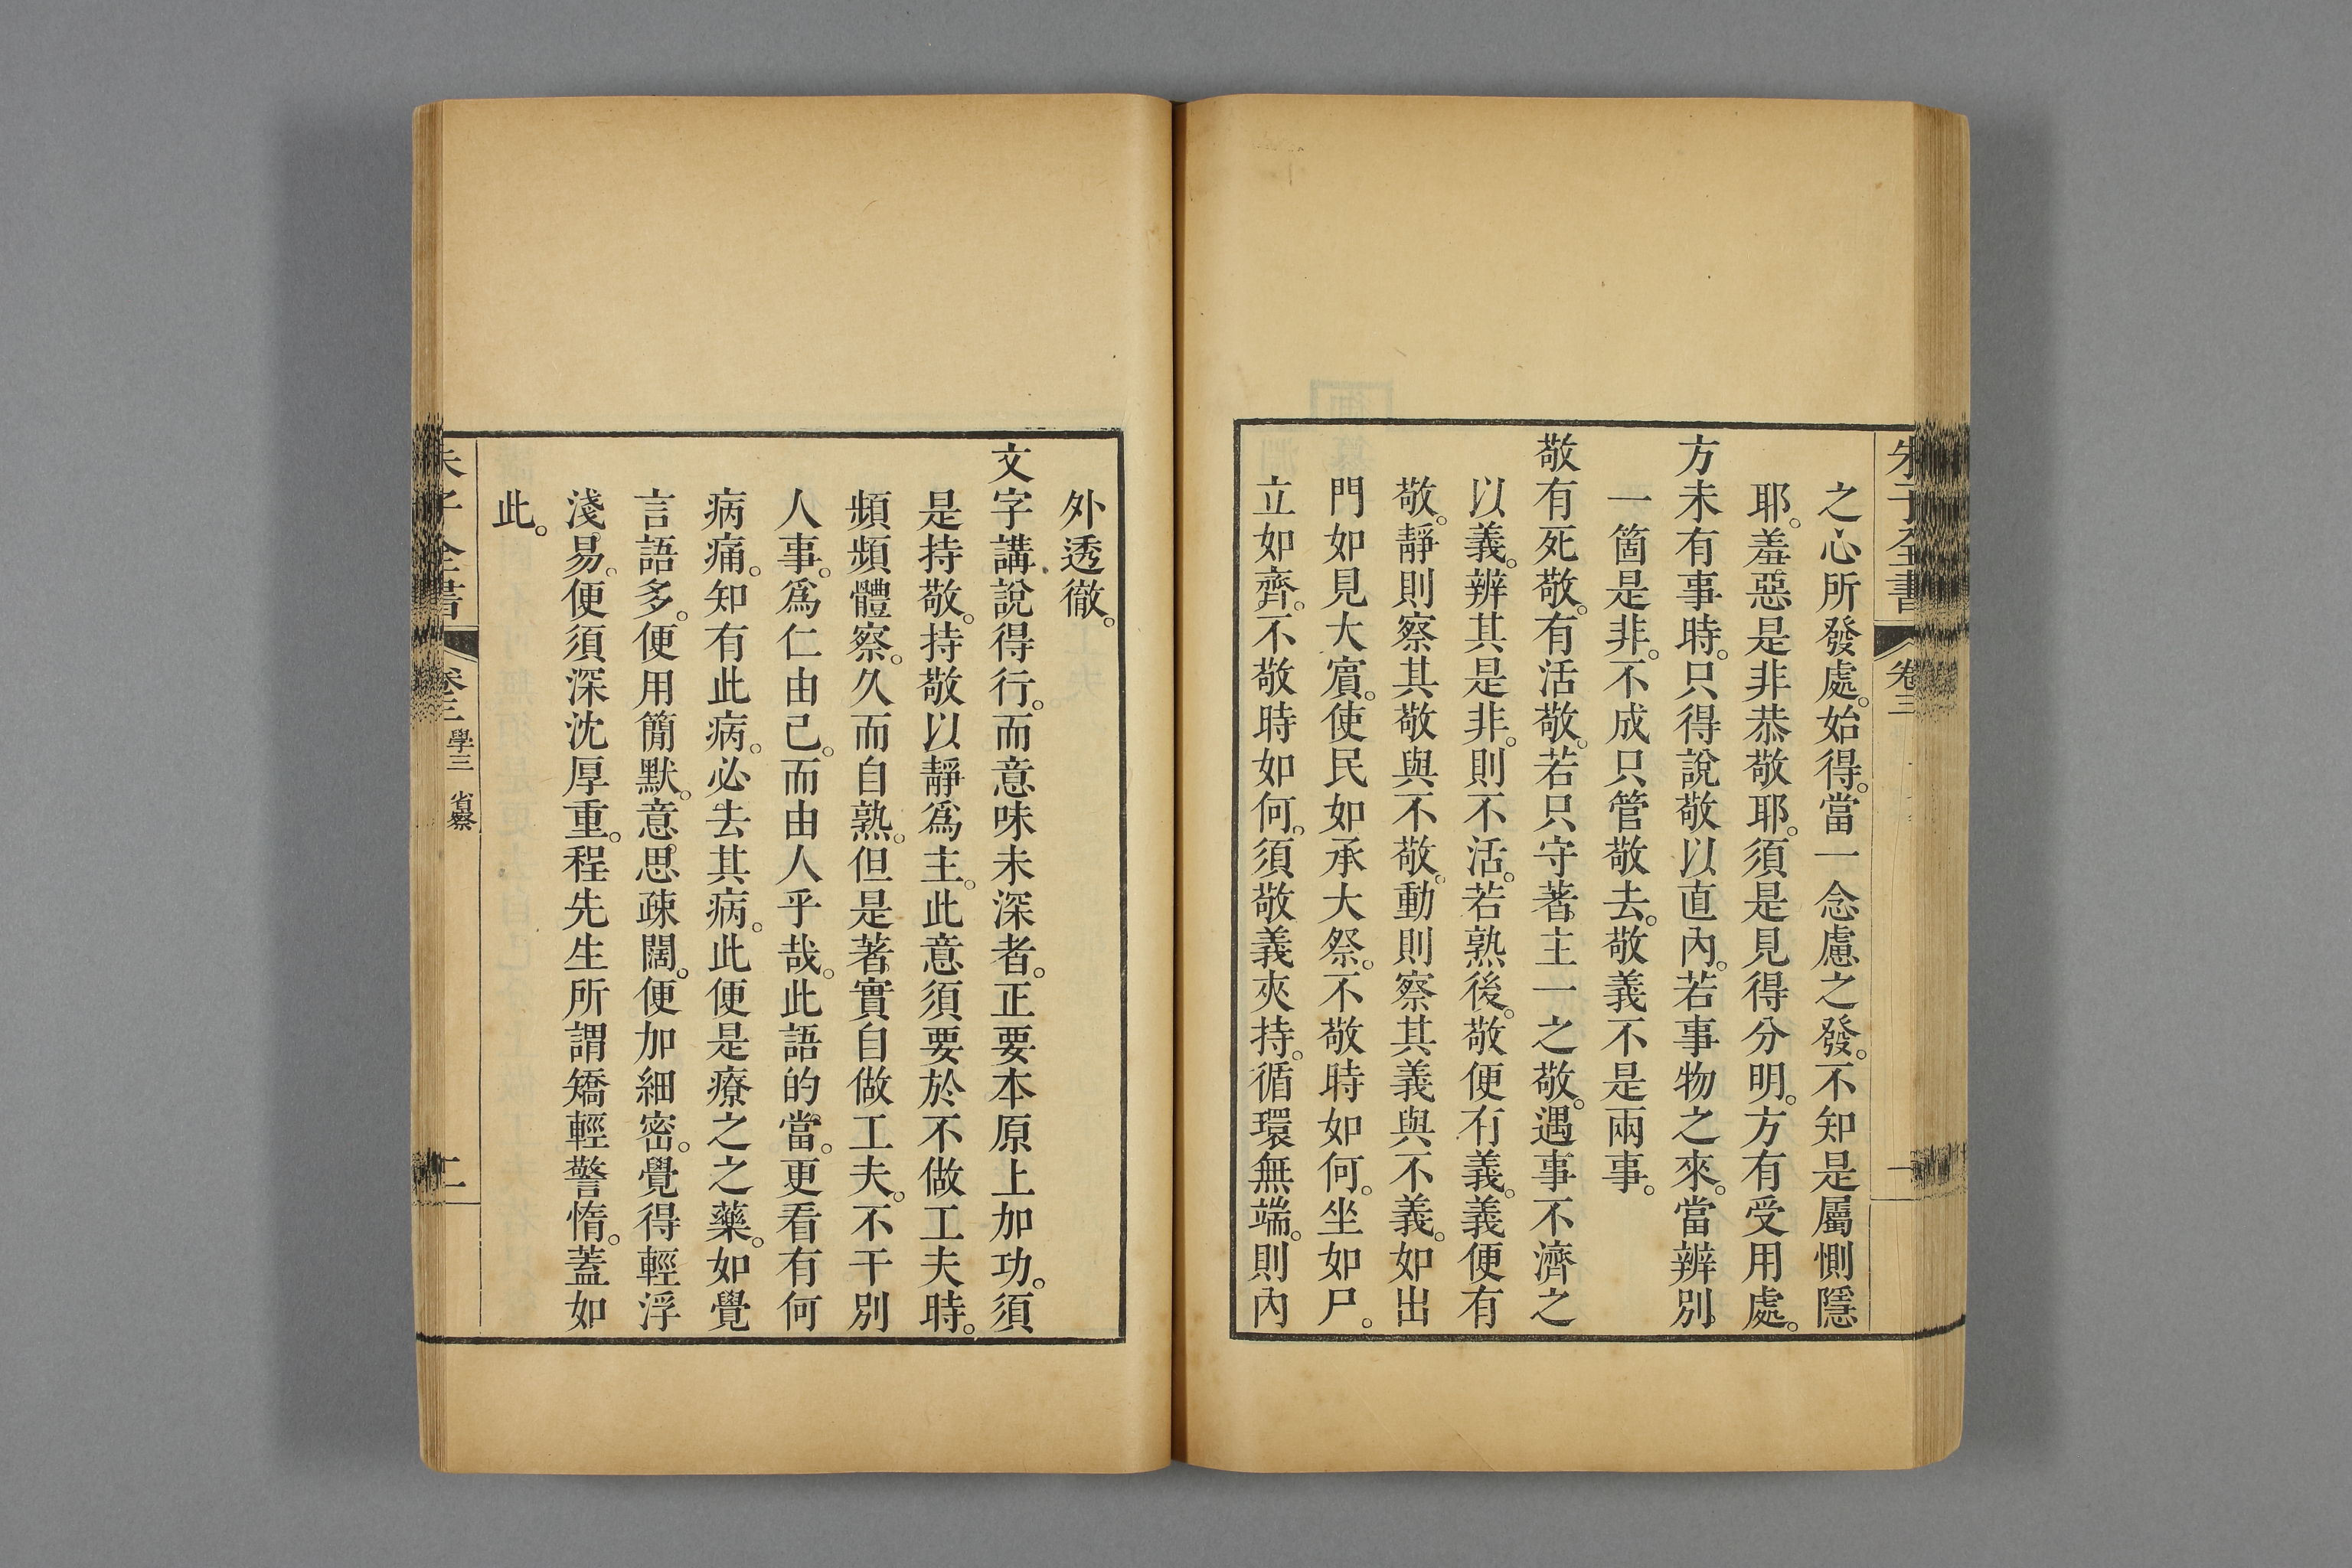 朱子全書 卷三 一
之心所發處。始得。當一念慮之發。不知是屬惻隱
耶。羞惡是非恭敬耶。須是見得分明。方有受用處。
方未有事時。只得說敬以直內。若事物之來。當辨別
一箇是非。不成只管敬去。敬義不是兩事。
敬有死敬。有活敬。若只守著主一之敬。遇事不濟之
以義。辨其是非。則不活。若熟後。敬便有義。義便有
敬。靜則察其敬與不敬。動則察其義與不義。如出
門如見大賓。使民如承大祭。不敬時如何。坐如尸。
立如齊。不敬時如何。須敬義夾持。循環無端。則內
外透徹。
文字講說得行。而意味未深者。正要本原上加功。須
是持敬。持敬以靜爲主。此意須要於不做工夫時。
頻頻體察。久而自熟。但是著實自做工夫。不干別
人事。爲仁由己。而由人乎哉。此語的當。更看有何
病痛。知有此病。必去其病。此便是療之之藥。如覺
言語多。便用簡默。意思疎闊。便加細密。覺得輕浮
淺易。便須深沈厚重。程先生所謂矯輕警惰。蓋如
此。
朱子全書 卷三 學三 省察 二